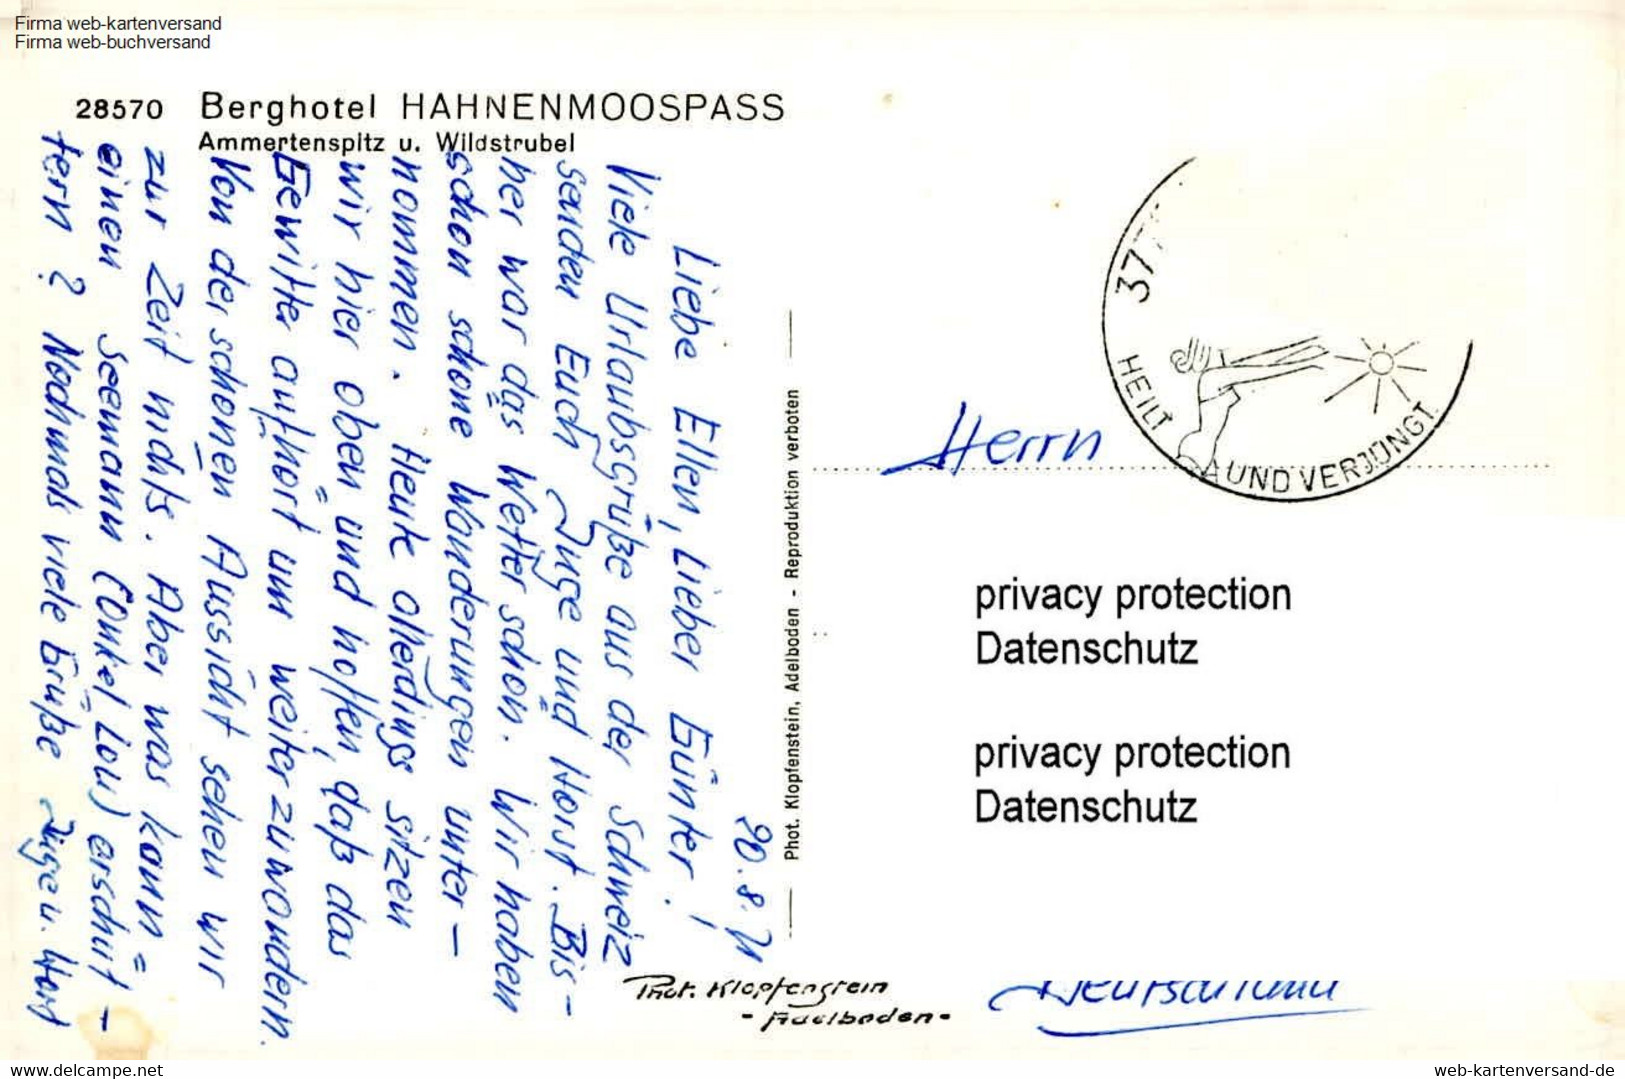 Firma web-kartenversand
Firma web-buchversand
28570 Berghotel HAHNENMOOSPASS
Ammertenspitz u. Wildstrubel
20.8.71
Liebe Ellen, Lieber Günter!
Viele Urlaubsgrüße aus der Schweiz
senden Euch Inge und Horst. Bis-
her war das Wetter schön. Wir haben
schon schöne Wanderungen unter-
nommen. Heute allerdings sitzen
wir hier oben und hoffen, daß das
Gewitter aufhört um weiterzuwandern.
Von der schönen Aussicht sehen wir
zur Zeit nichts. Aber was kann
einen Seemann (Onkel Lou) erschüt-
tern? Nochmals viele Grüße Inge u. Horst
Phot. Klopfenstein, Adelboden - Reproduktion verboten
Phot. Klopfenstein
- Adelboden -
37
HEILT UND VERJÜNGT
Herrn
privacy protection
Datenschutz
privacy protection
Datenschutz
Deutschland
www.web-kartenversand.de
web-kartenversand-de